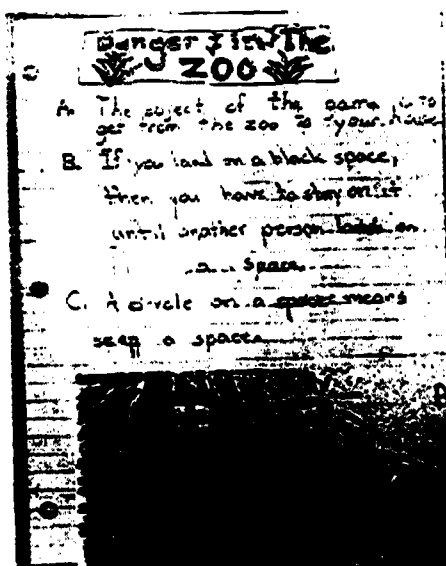 Danger in The
ZOO
A. The object of the game is to
get from the zoo to your house
B. If you land on a black space,
then you have to stay on it
until another person lands on
a space.
C. A circle on a space means
skip a space